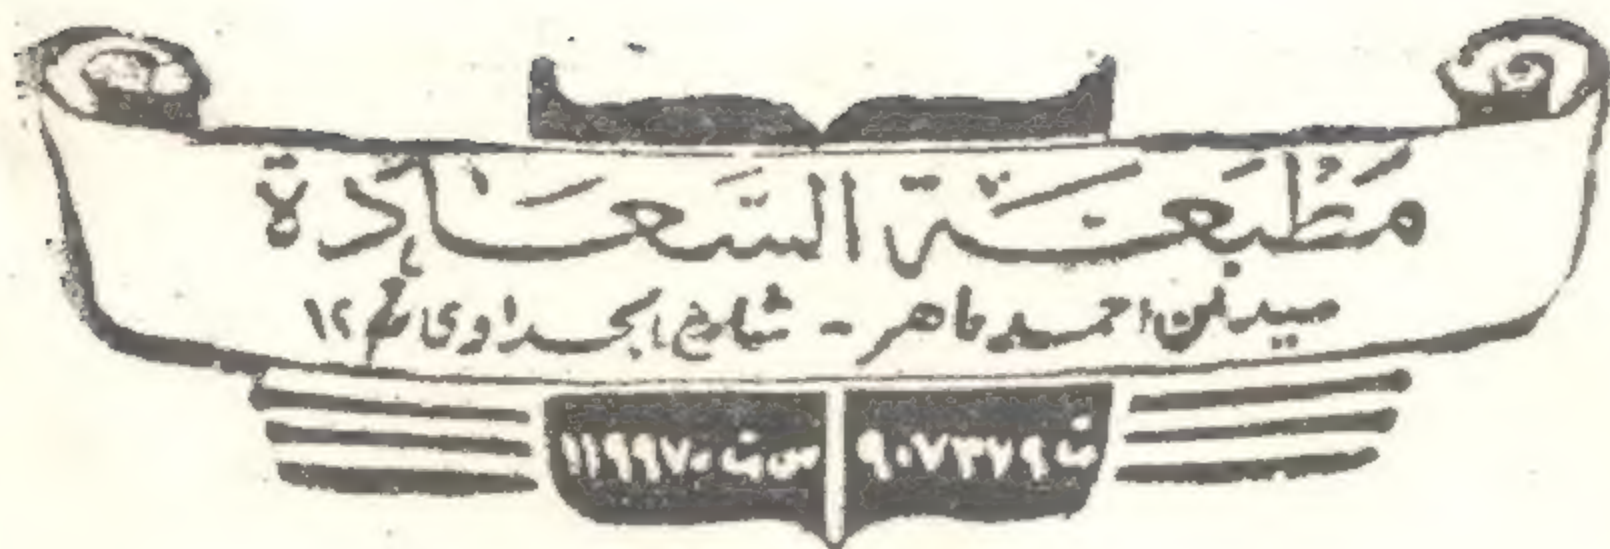 مَطْبَعَة السَّعَادَة
ميدان أحمد ماهر - شارع الجداوى رقم ١٢
ت ٩٠٧٣٧٩ س ت ١١٩٩٧٠